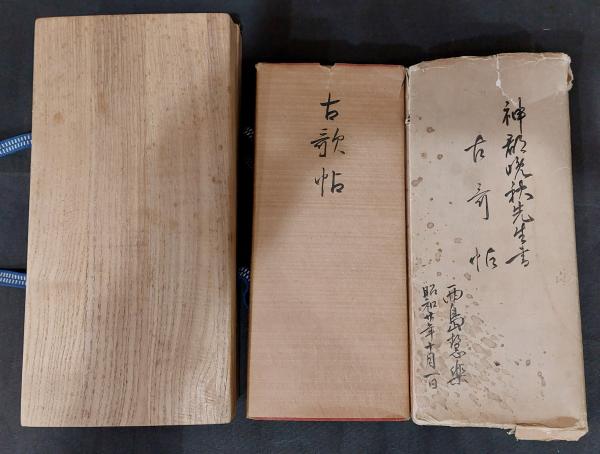 古歌帖
神郡晩秋先生書
古哥帖
西島慧樂
昭和廿年十月一日